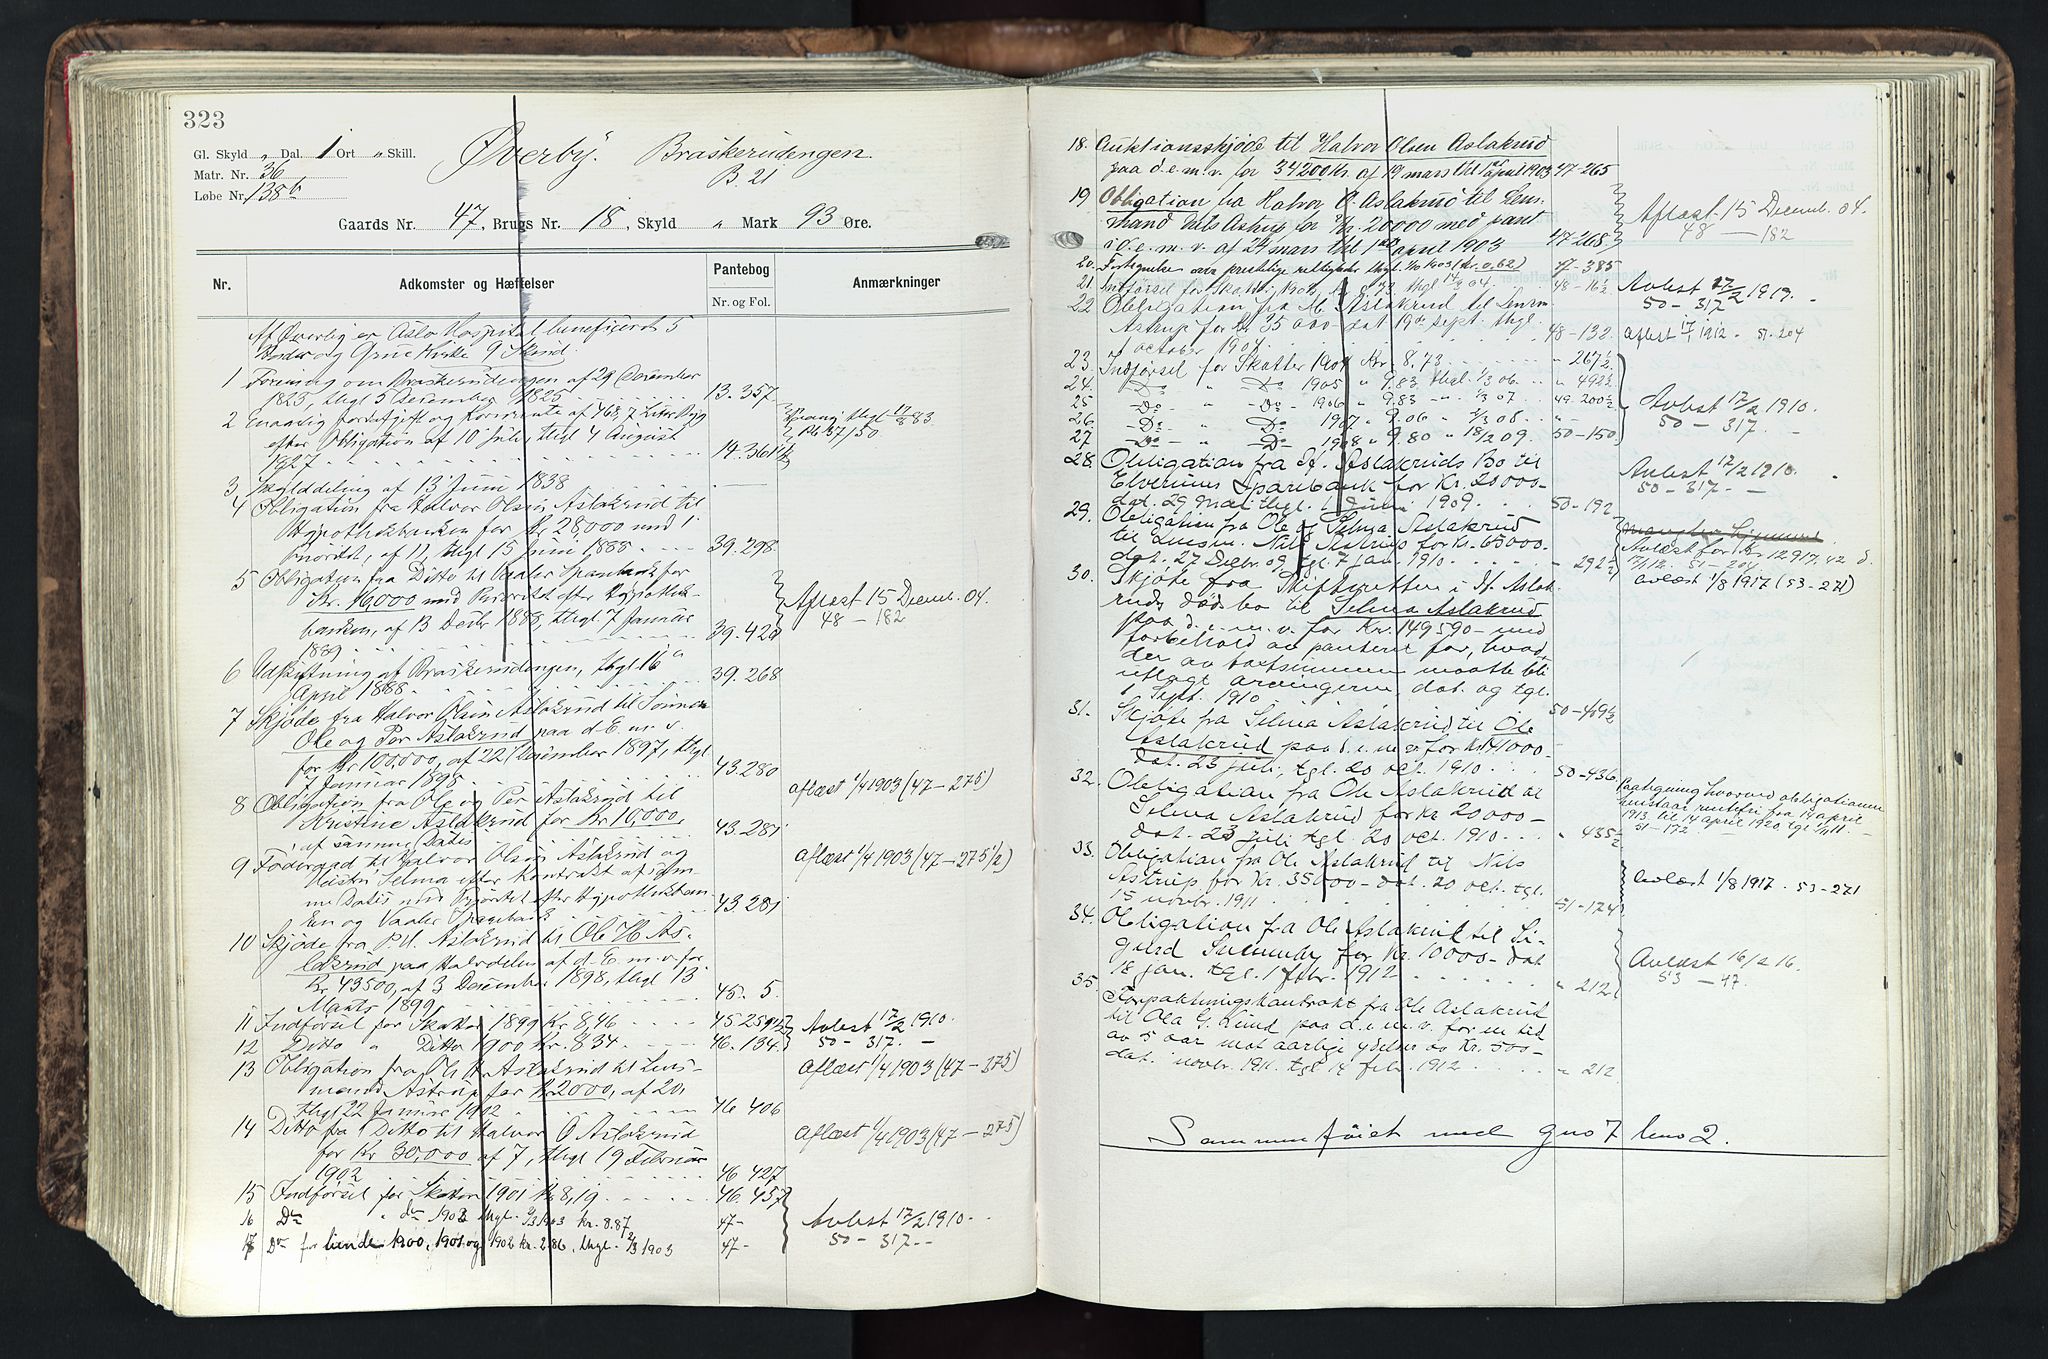 323
Gl. Skyld " Dal. 1 Ort " Skill.
Matr. Nr. 36
Løbe Nr. 138b
Øverby. Braskerudengen
B. 21
Gaards Nr. 47, Brugs Nr. 18, Skyld " Mark 93 Øre.
Nr.
Adkomster og Hæftelser
Pantebog
Nr. og Fol.
Anmærkninger
Af Øverby er Oslo Hospital beneficeret 5
og Grue Kirke 9 Skind.
1 Forening om Braskerudengen af 29 December
1825, thgl 5 December 1825 13. 357
2 Aarlig og Kornrente af
efter Obligation af 10 Juli, thgl 4 August
1827 14. 361
3 Skylddeling af 13 Juni 1838
4 Obligation fra Halvor Olsen Aslakrud til
Hypothekbanken for Kr 28,000 med 1
Prioritet, af 11, thgl 15 Juni 1888 39. 298
5 Obligation fra Ditto til Vaaler Sparebank for
Kr. 16,000 med Prioritet efter Hypothek-
banken, af 13 Decbr 1888, thgl 7 Januar
1889 39. 420
Aflæst 15 Decemb. 04.
48 — 182
6 Udskiftning af Braskerudengen, thgl 16
April 1888 39. 268
7 Skjøde fra Halvor Olsen Aslakrud til Sønnen
Ole og Per Aslakrud paa d. E. m. v.
for Kr 100,000, af 22 December 1897, thgl
7 Januar 1898 43. 280
8 Obligation fra Ole og Per Aslakrud til
Kristine Aslakrud for Kr 10,000,
af samme Datis 43. 281
aflæst 1/4 1903 (47-275)
9 Föderaad til Halvor Olsen Aslakrud og
Hustru Selma efter Kontrakt af sam-
me Datis med Prioritet efter Hypothekban
ken og Vaaler Sparebank 43. 281
aflæst 1/4 1903 (47-275 1/2)
10 Skjøde fra P. H. Aslakrud til Ole H. As-
lakrud paa Halvdelen af d. E. m. v. for
Kr 43500, af 3 December 1898, thgl 13
Marts 1899 45. 5.
11 Indførsel for Skatter 1899 Kr 8,46
12 Ditto " Ditto 1900 Kr. 8.34 46. 134.
Avlæst 17/2 1910.
50 - 317. -
13 Obligation fra Ole H. Aslakrud til Lens-
mand Astrup for Kr 2000, af 20,
thgl 22 Januar 1902 46 406
aflæst 1/4 1903 (47-275)
14 Ditto fra Ditto til Halvor O Aslakrud
for Kr 30,000 af 7, thgl 19 Februar
1902 46 427
aflæst 1/4 1903 (47-275)
15 Indførsel for Skatter 1901 Kr 8,19 46. 457
16 Do " do 1902 thgl. 9/3 1903 kr. 8.87 47-
17 Do for tiende 1900, 1901 og 1902 kr. 2.86. thgl. 9/3 1903 47-
Avlæst 17/2 1910.
50 - 317.
18. Auktionsskjøde til Halvor Olsen Aslakrud
paa d.e.m.v. for 34200 Kr. af 19 mars thl 1st april 1903 47-265
19 Obligation fra Halvor O. Aslakrud til Lens-
mand Nils Astrup for Kr. 20000 med pant
i d.e.m.v. af 24 mars thl 1st april 1903 47-268
Aflæst 15 Decemb. 04.
48 — 182
20. Fortegnelse over prestelige rettigheder thgl. (Kr 0,62) 47-385
21. Indførsel for Skat 48-16 1/2
Avlæst 17/2 1910.
50 - 317 -
22 Obligation fra H. Aslakrud til Lensm.
Astrup for kr 35000 dat 19de sept. thgl
1 october 1904 48-132
aflæst 17/1 1912. 51. 204
23. Indførsel for Skatter 1904 Kr. 8.73 " 267 1/2
24. Do " Do 1905 " 9.83 thgl. 1/3 06 " 492 1/2
25 Do " Do 1906 " 9.83 " 1/3 07 49. 200 1/2
26 Do " Do 1907 " 9.06 " 2/3 08 " -
27 Do " Do 1908 " 9.80 " 18/2 09. 50-150
Avlæst 17/2 1910.
50 - 317. -
28. Obligation fra H. Aslakruds Bo til
Elverums Sparebank for Kr. 20000-
dat. 29 mai thgl. 1 Juni 1909 50-192
Avlæst 17/2 1910.
50-317. -
29. Obligation fra Ole og Selma Aslakrud
til Lensm. Nils Astrup for Kr. 65000-
dat. 27 Decbr. 09 tgl. 7 jan. 1910 - 292 1/2
Avlæst for Kr 12917,42 d.
17/1 12. 51-204.
avlæst 1/8 1917 (53-271)
30. Skjøte fra Skifteretten i H. Aslak-
ruds dødsbo til Selma Aslakrud
paa d. e. m. v. for Kr. 149590- med
forbehold av panteret for, hvad
der av kjøbesummen maatte bli
utlagt arvingerne, dat. og tgl.
1 Sept. 1910 50-409 1/2
31. Skjøte fra Selma Aslakrud til Ole
Aslakrud paa d. e. m. v. for Kr 141000-
dat. 23 juli, tgl. 20 oct. 1910 50-436
32. Obligation fra Ole Aslakrud til
Selma Aslakrud for Kr 20000-
dat. 23 juli tgl. 20 oct. 1910 " 435 1/2
Paategning hvorved obligationen
henstaar rentefri fra 14 april
1913 til 14 april 1920 tgl
51-172
33. Obligation fra Ole Aslakrud til Nils
Astrup for Kr. 35000- dat. 20 oct. tgl.
15 novbr. 1911 51-174
Avlæst 1/8 1917. 53-271
34. Obligation fra Ole Aslakrud til Si-
gurd for Kr. 10000- dat.
18 jan. tgl. 1 febr. 1912 " 212
Avlæst 16/2 16.
53 — 47.
35. Forpaktningskontrakt fra Ole Aslakrud
til Ola G. Lund paa d. e. m. v. for en tid
av 5 aar mot aarlige ydelser av Kr. 500-
dat. novbr. 1911. tgl 14 febr. 1912 " 212
Sammenføiet med gno 7 bno 2.